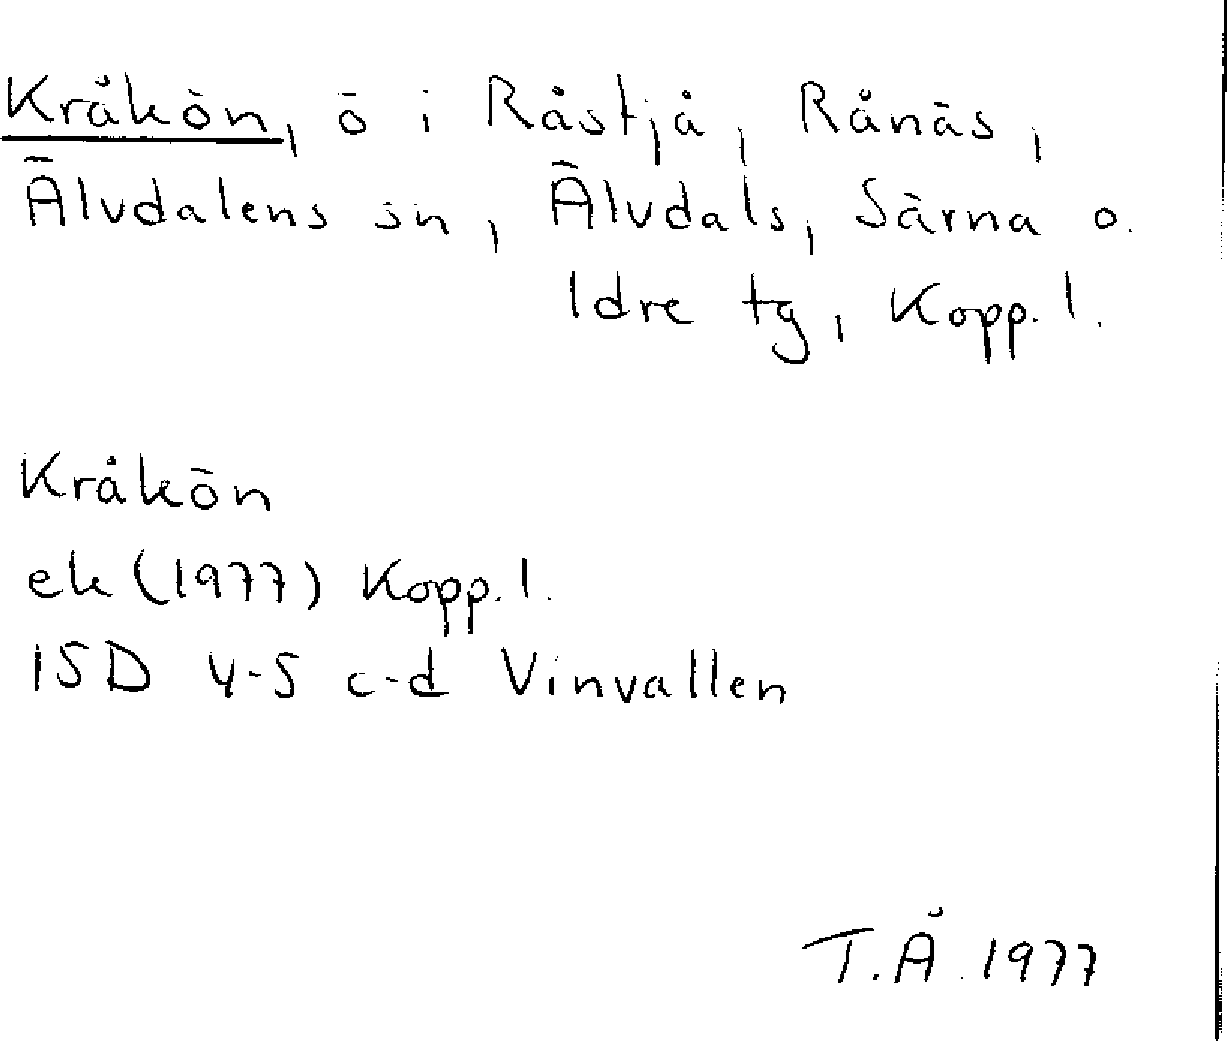 Kråkön, ö i Råstjå, Rånäs,
Älvdalens sn, Älvdals, Särna o.
Idre tg, Kopp. l.
Kråkön
ek (1977) Kopp. l.
15D 4-5 c-d Vinvallen
T.Å. 1977